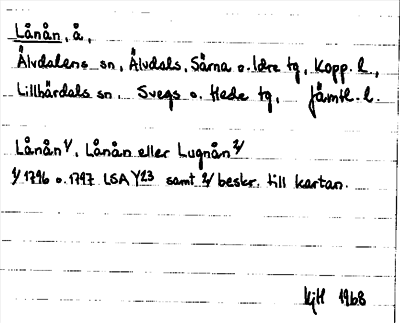 Lånån, å,
Älvdalens sn, Älvdals, Särna o. Idre tg, Kopp. l.,
Lillhärdals sn, Svegs o. Hede tg, Jämtl. l.
Lånån 1/, Lånån eller Lugnån 2/
1/ 1796 o. 1797 LSA Y23 samt 2/ beskr. till kartan.
KjH 1968